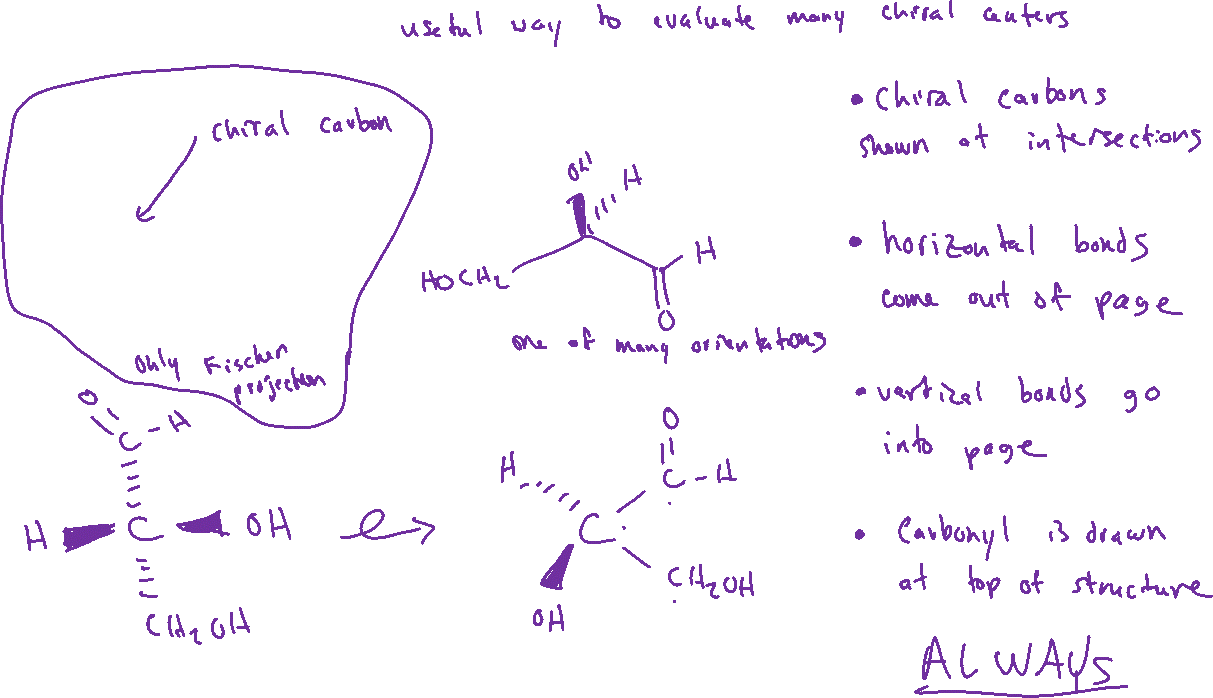 useful way to evaluate many chiral centers
chiral carbon
only Fischer
projection
OH
H
HOCH2
H
O
one of many orientations
• chiral carbons
shown at intersections
• horizontal bonds
come out of page
• vertical bonds go
into page
• Carbonyl is drawn
at top of structure
ALWAYS
O
C
H
H
C
OH
CH2OH
O
C
H
H
C
OH
CH2OH